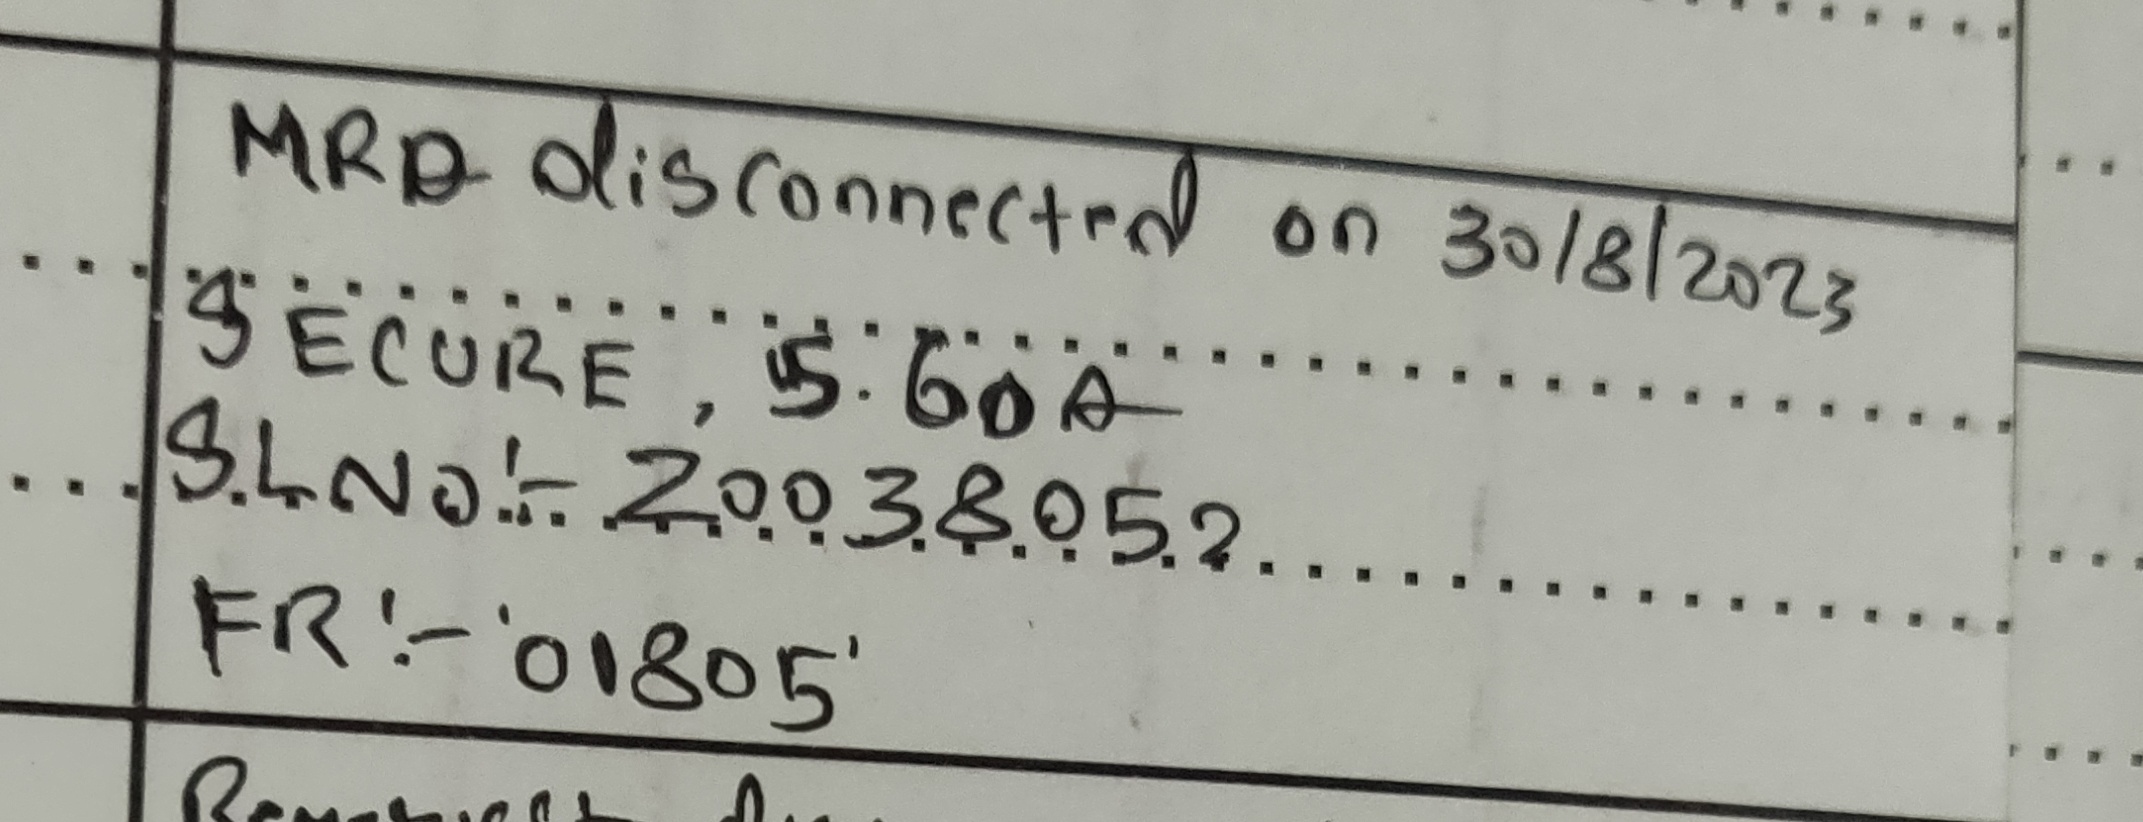 MRD disconnected on 30/8/2023
SECURE, 5.60A
S.L NO:- 20038052
FR:- '01805'